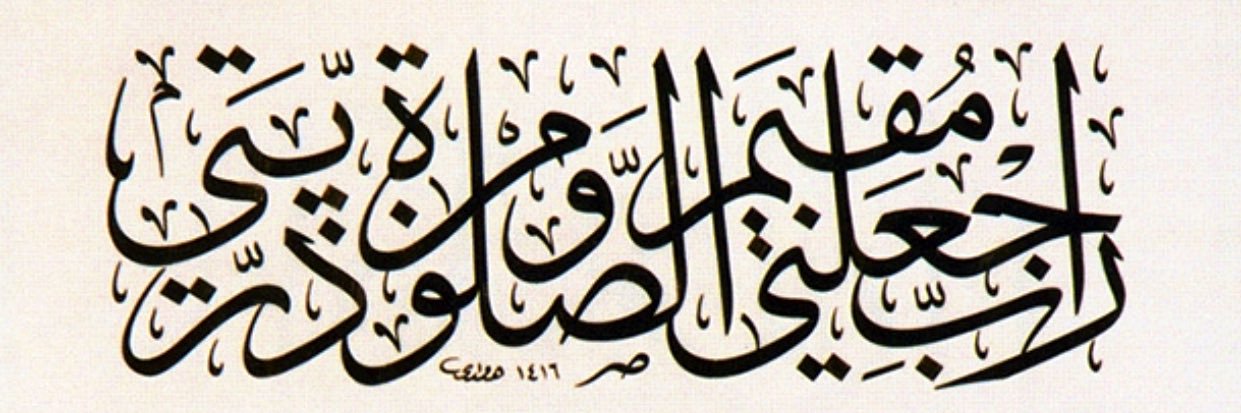 رَبِّ اجْعَلْنِي مُقِيمَ الصَّلَوةِ وَمِنْ ذُرِّيَّتِي
١٤١٦